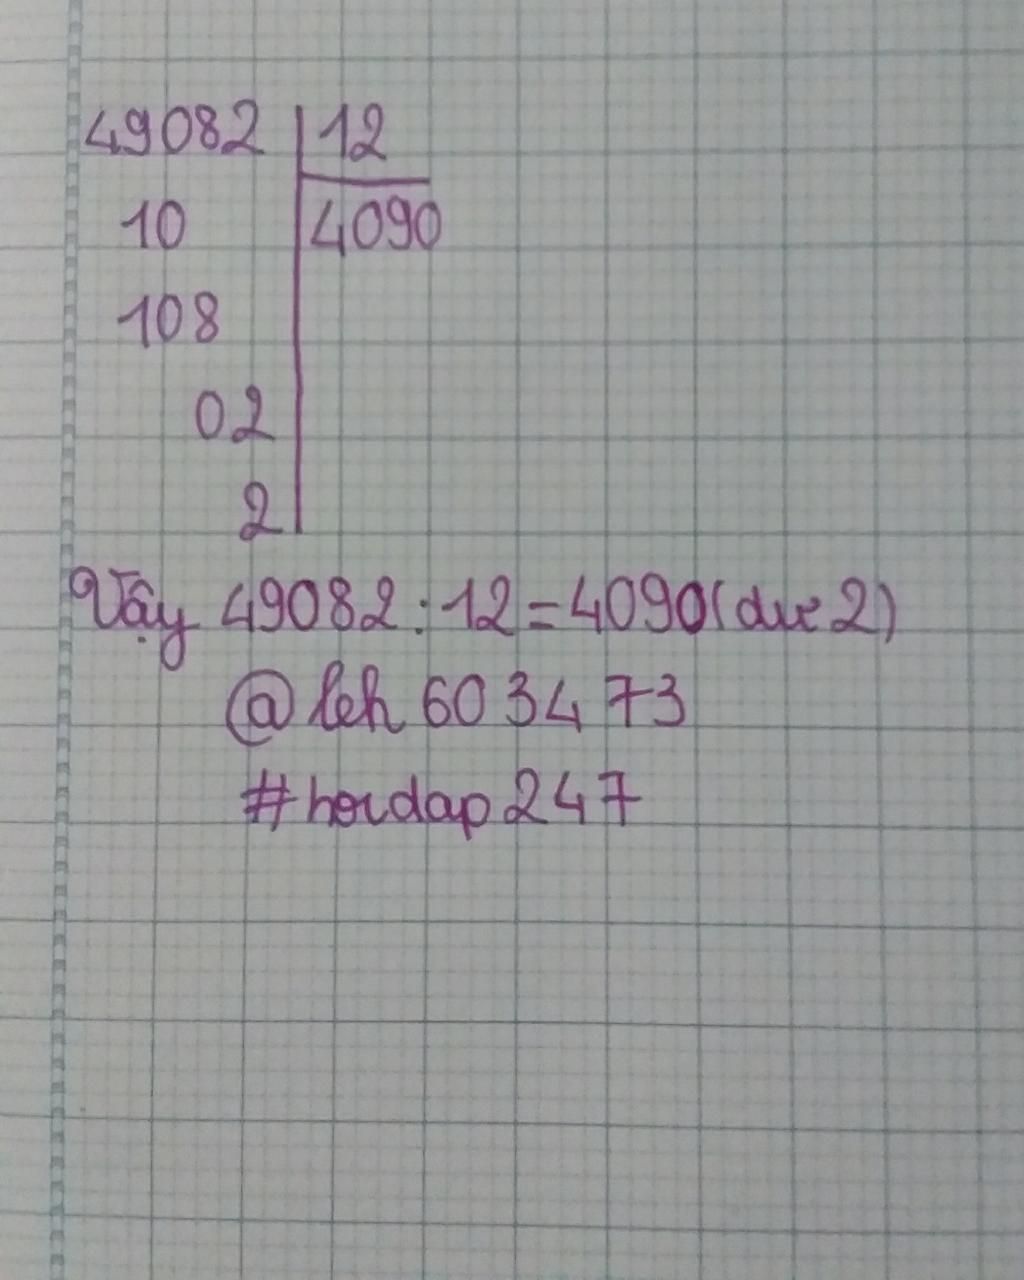 49082 12
10 4090
108
02
2
Vậy 49082 : 12 = 4090 (dư 2)
@leh603473
#hoidap247